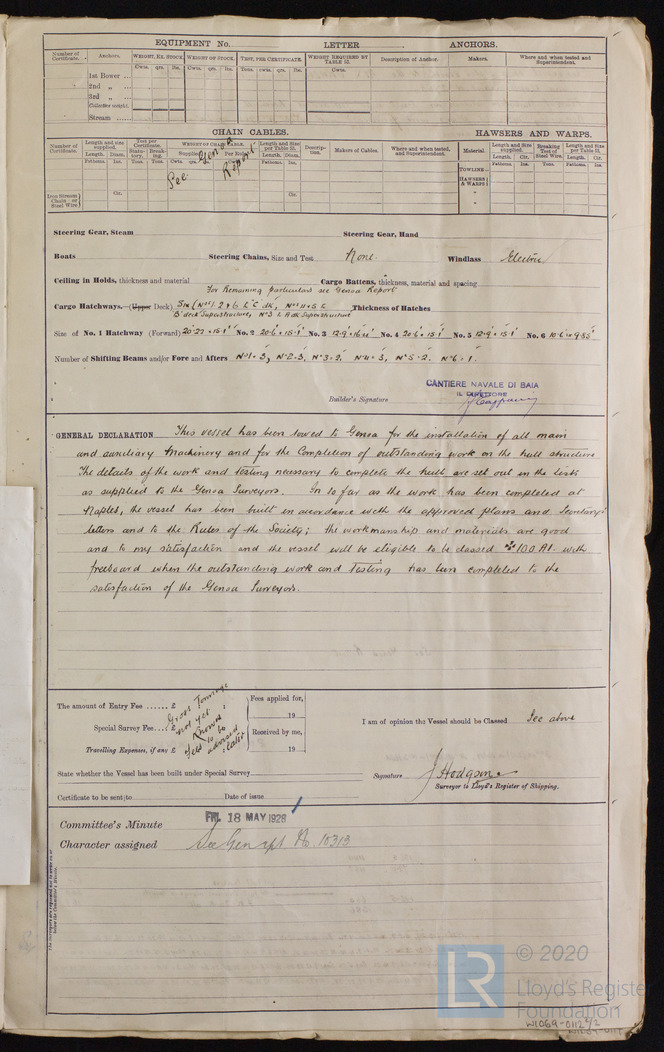 EQUIPMENT No. LETTER ANCHORS.
Number of Certificate. Anchors. WEIGHT, EX. STOCK WEIGHT OF STOCK. TEST, PER CERTIFICATE. WEIGHT REQUIRED BY TABLE 53. Description of Anchor. Makers. Where and when tested and Superintendent.
Cwts. qrs. lbs. Cwts. qrs. lbs. Tons. cwts. qrs. lbs. Cwts.
1st Bower ...
2nd „ ...
3rd „ ...
Collective weight.
Stream ......
CHAIN CABLES. HAWSERS AND WARPS.
Number of Certificate. Length and size supplied. Test per Certificate. WEIGHT OF CHAIN CABLE. Length and Size per Table 53. Description. Makers of Cables. Where and when tested, and Superintendent. Material. Length and Size supplied. Breaking Test of Steel Wire. Length and Size per Table 53.
Length. Diam. Statutory. Breaking. Supplied. Per Rule. Length. Diam. Length. Cir. Length. Cir.
Fathoms. Ins. Tons. Tons. Cwts. qrs. Fathoms. Ins. Fathoms. Ins. Tons. Fathoms. Ins.
See Genoa Report
TOWLINE ...
HAWSERS & WARPS
Iron Stream Chain or Steel Wire
Cir. Cir.
Steering Gear, Steam Steering Gear, Hand
Boats Steering Chains, Size and Test None. Windlass Electric
Ceiling in Holds, thickness and material Cargo Battens, thickness, material and spacing
For Remaining particulars see Genoa Report
Cargo Hatchways.—(Upper Deck) Six (Nos 1. 2 & 6 L'C dk, Nos 4 & 5 L Thickness of Hatches
'B' deck Superstructure, No 3 L A dk Superstructure
Size of No. 1 Hatchway (Forward) No. 2 20·6 × 15·1 No. 3 No. 4 20·6 × 15·1 No. 5 12·9 × 15·1 No. 6
Number of Shifting Beams and/or Fore and Afters No 1 = 3, No 2 = 3, No 3 = 2, No 4 = 3, No 5 = 2. No 6 = 1.
CANTIERE NAVALE DI BAIA
IL DIRETTORE
Builder's Signature
GENERAL DECLARATION This vessel has been towed to Genoa for the installation of all main
and auxiliary Machinery and for the Completion of outstanding work on the hull structure
The details of the work and testing necessary to complete the hull are set out in the lists
as supplied to the Genoa Surveyors. In so far as the work has been completed at
Naples, the vessel has been built in accordance with the approved plans and Secretary's
letters and to the Rules of the Society; the workmanship and materials are good
and to my satisfaction and the vessel will be eligible to be classed 100 A1. with
freeboard when the outstanding work and Testing has been completed to the
satisfaction of the Genoa Surveyors.
The amount of Entry Fee ...... £ Fees applied for,
19
Special Survey Fee.... £ Received by me,
Travelling Expenses, if any £ 19
Gross Tonnage
not yet
Known
Feb to be
advised
later
I am of opinion the Vessel should be Classed See above
State whether the Vessel has been built under Special Survey
Signature J Hodgson
Surveyor to Lloyd's Register of Shipping.
Certificate to be sent to Date of issue
Committee's Minute FRI. 18 MAY 1928
Character assigned See Gen rpt No. 10313
The Surveyors are requested not to write on or below the Committee's Minute.
© 2020
Lloyd's Register
Foundation
LR